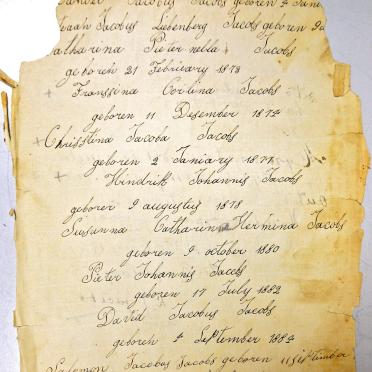 Jacobus Jacobs geboren 4 Juni
Jacobus Lubenberg Jacobs geboren
Catharina Pieter nella Jacobs
geboren 21 Februery 1873
+ Franssina Corlina Jacobs
geboren 11 Desember 1874
+ Christina Jacoba Jacobs
geboren 2 Januiary 1877
+ Hindrik Johannis Jacobs
geboren 9 augustus 1878
Susanna Catharina Hermina Jacobs
geboren 9 october 1880
Pieter Johannis Jacobs
geboren 17 July 1882
David Jacobus Jacobs
geboren 4 September 1884
Salomon Jacobus Jacobs geboren 11 September